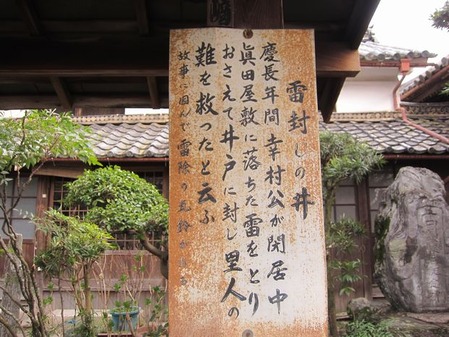 雷封しの井
慶長年間幸村公が閑居中
眞田屋敷に落ちた雷をとり
おさえて井戸に封し里人の
難を救ったと云ふ
故事に因んで雷除の土鈴が